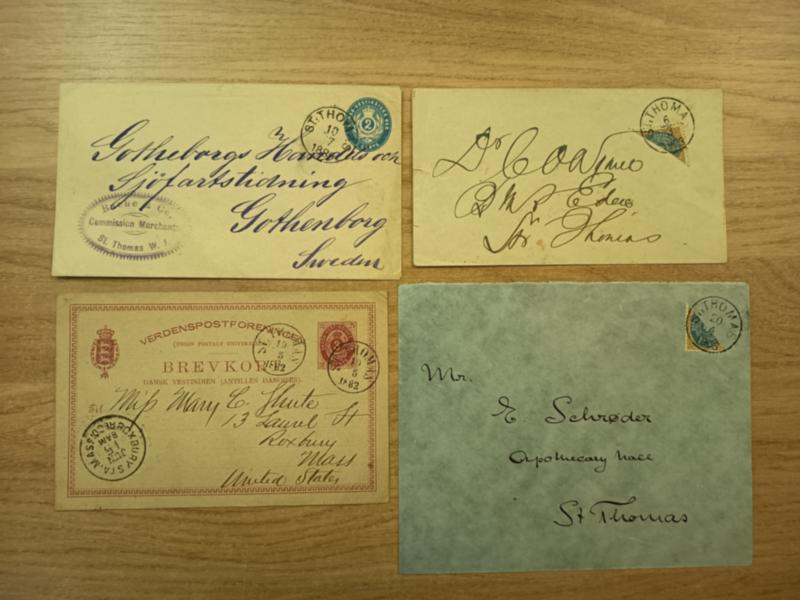 ST. THOMAS
10
7
2
Gotheborgs Handels och
Sjöfartstidning
Gothenborg
Sweden
& Co.
Commission Merchants
St. Thomas W. I.
ST. THOMA
6
Dr C
St Thomas
VERDENSPOSTFORENINGEN
(UNION POSTALE UNIVERSELLE)
BREVKORT
DANSK VESTINDIEN (ANTILLES DANOISES)
Til Miss Mary C. Shute
13 Laurel St
Roxbury
Mass
United States
ST. THOMAS
10
5
1882
ST. THOMAS
10
5
1882
ROXBURY STA. MASS. REC'D.
JUN
8 AM
ST. THOMAS
20
Mr.
E Schrøder
Apothecary hall
St Thomas